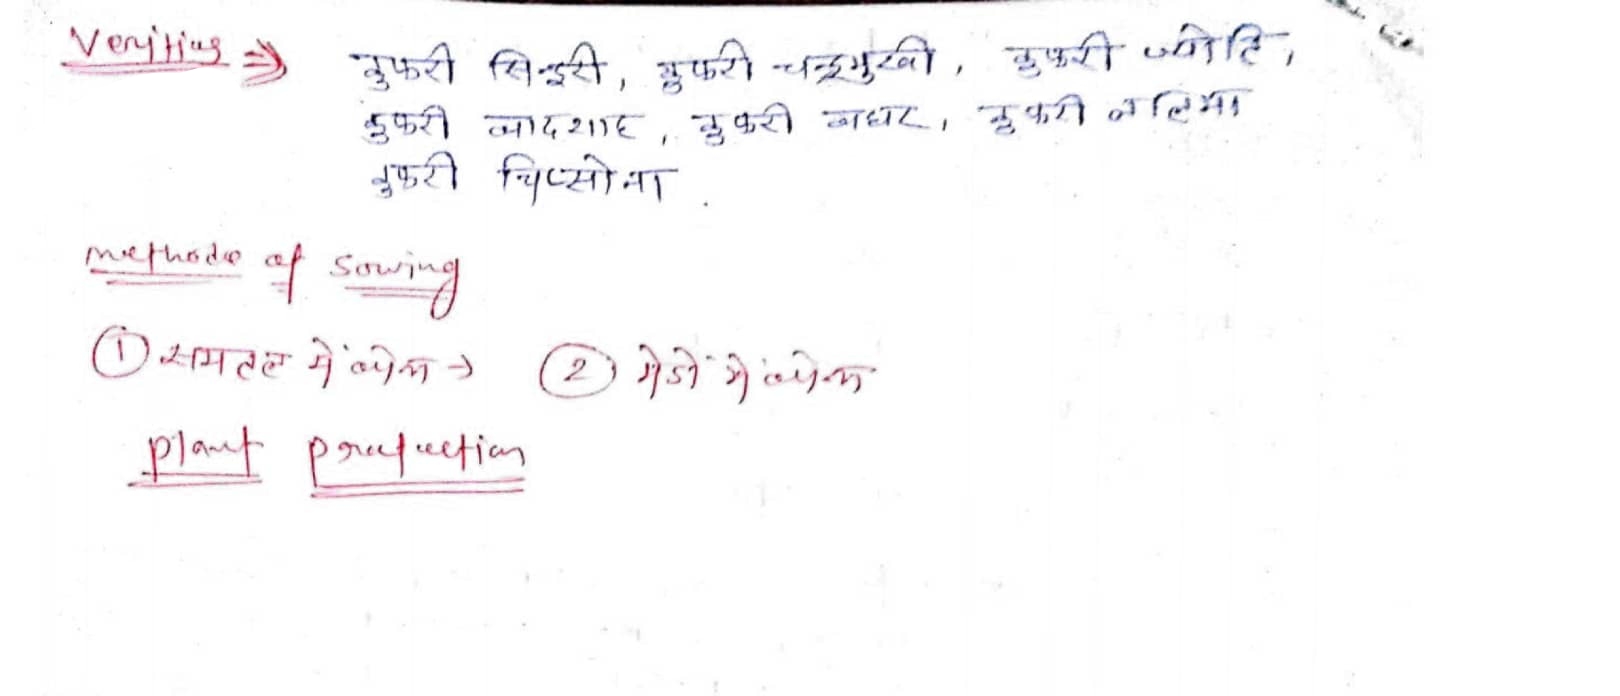 Verities ⇒ कुफरी सिन्दुरी, कुफरी चन्द्रमुखी, कुफरी ज्योति,
कुफरी बादशाह, कुफरी बाहर, कुफरी ललिमा
कुफरी चिप्सोना.
methode of sowing
① समतल में बोना → ② मेडो में बोना
plant protection